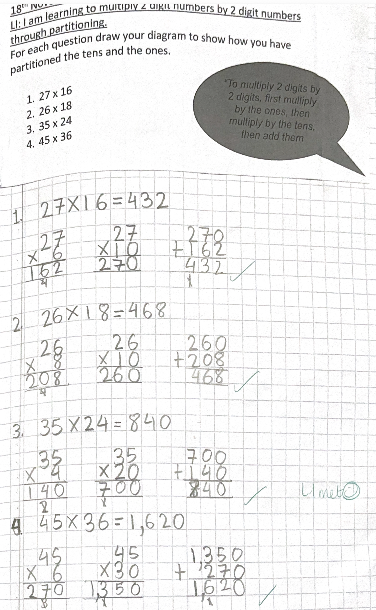 18th
LI: I am learning to multiply 2 digit numbers by 2 digit numbers
through partitioning.
For each question draw your diagram to show how you have
partitioned the tens and the ones.
1. 27 x 16
2. 26 x 18
3. 35 x 24
4. 45 x 36
"To multiply 2 digits by
2 digits, first multiply
by the ones, then
multiply by the tens,
then add them
1. 27×16=432
27 27 270
×6 ×10 +162
162 270 432
4 1
2 26×18=468
26 26 260
×8 ×10 +208
208 260 468
4
3. 35×24=840
35 35 700
×4 ×20 +140
140 700 840
2 1
LI met
4 45×36=1,620
45 45 1,350
×6 ×30 +270
270 1,350 1,620
3 1 1